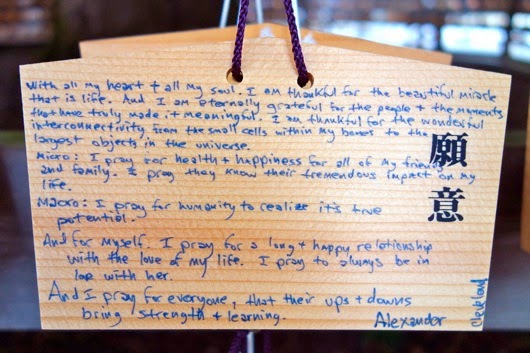 With all my heart + all my soul. I am thankful for the beautiful miracle
that is life. And I am eternally grateful for the people + the moments
that have truly made it meaningful. I am thankful for the wonderful
interconnectivity from the small cells within my bones to the
largest objects in the universe.
Micro: I pray for health + happiness for all of my friends
and family. I pray they know their tremendous impact on my
life.
Macro: I pray for humanity to realize it's true
potential.
And for myself. I pray for a long + happy relationship
with the love of my life. I pray to always be in
love with her.
And I pray for everyone, that their ups + downs
bring strength + learning.
Alexander
Cleveland
願意